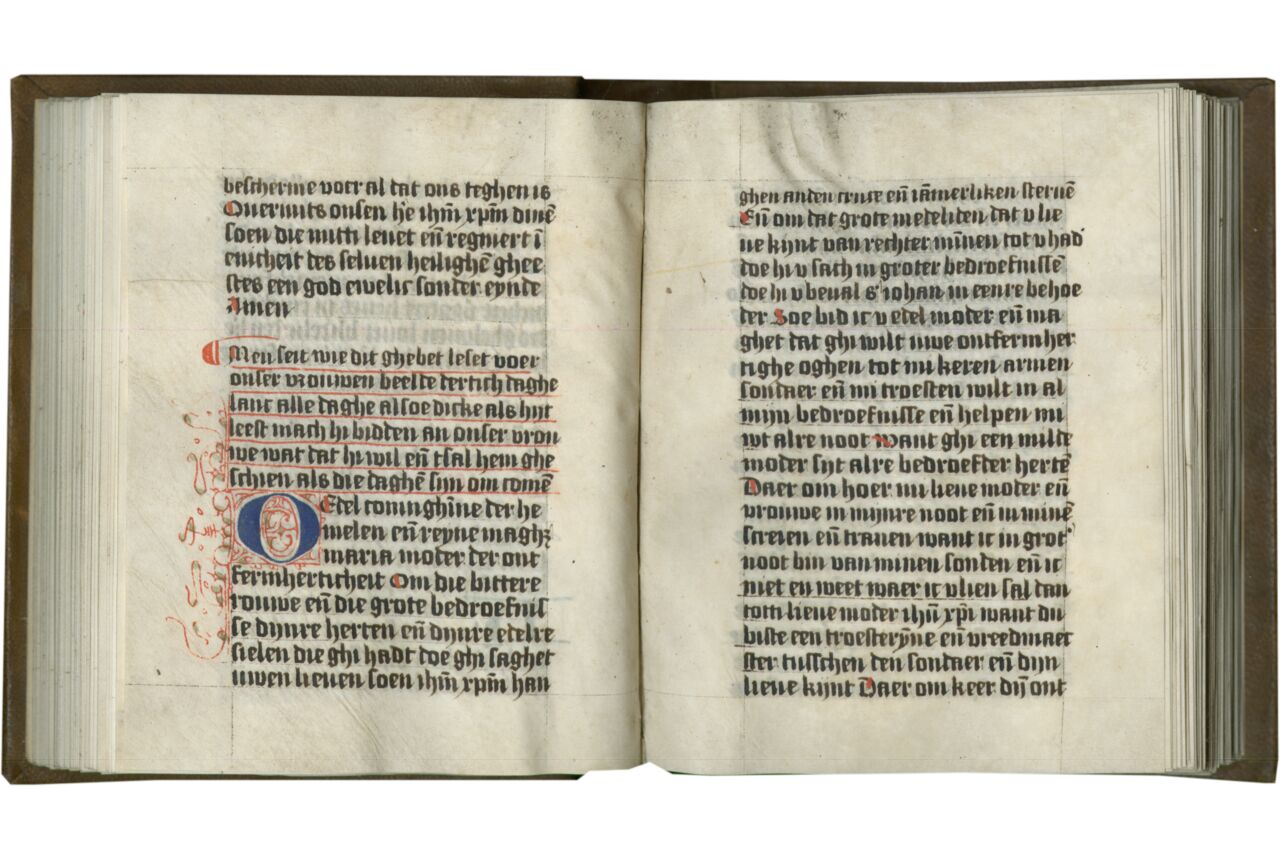 bescherme voer al dat ons teghen is
Ouermits onsen hē ihm̄ xpm̄ dinē
soen die mitti leuet en̄ regniert ī
enicheit des seluen heilighē ghee
stes een god ewelic sonder eynde
Amen
Men seit wie dit ghebet leset voer
onser vrouwen beelde dertich daghe
lanc alle daghe alsoe dicke als hijt
leest mach hi bidden an onser vrou
we wat dat hi wil en̄ tsal hem ghe
schien als die daghē sijn om comē
O Edel coninghīne der he
melen en̄ reyne maghꝫ
maria moder der ont
fermherticheit Om die bittere
rouwe en̄ die grote bedroefnis
se dijnre herten en̄ dijnre edelre
sielen die ghi hadt doe ghi saghet
uwen lieuen soen ihm̄ xpm̄ han
ghen anden cruce en̄ iāmerliken steruē
En̄ om dat grote medeliden dat v lie
ue kijnt van rechter mīnen tot v had
doe hi v sach in groter bedroefnissē
doe hi v beual s' iohan in eenre behoe
der Soe bid ic v edel moder en̄ ma
ghet dat ghi wilt uwe ontfermher
tighe oghen tot mi keren armen
sondaer en̄ mi troesten wilt in al
mijn bedroefnisse en̄ helpen mi
wt alre noot want ghi een milde
moder sijt alre bedroefder hertē
Daer om hoer mi lieue moder en̄
vrouwe in mijnre noot en̄ in minē
screien en̄ tranen want ic in grot'
noot bin van minen sonden en̄ ic
niet en weet waer ic vlien sal dan
totti lieue moder ihū xpi want du
biste een troesterȳne en̄ vreedmaec
ster tusschen den sondaer en̄ dijn
lieue kijnt Daer om keer dij ont